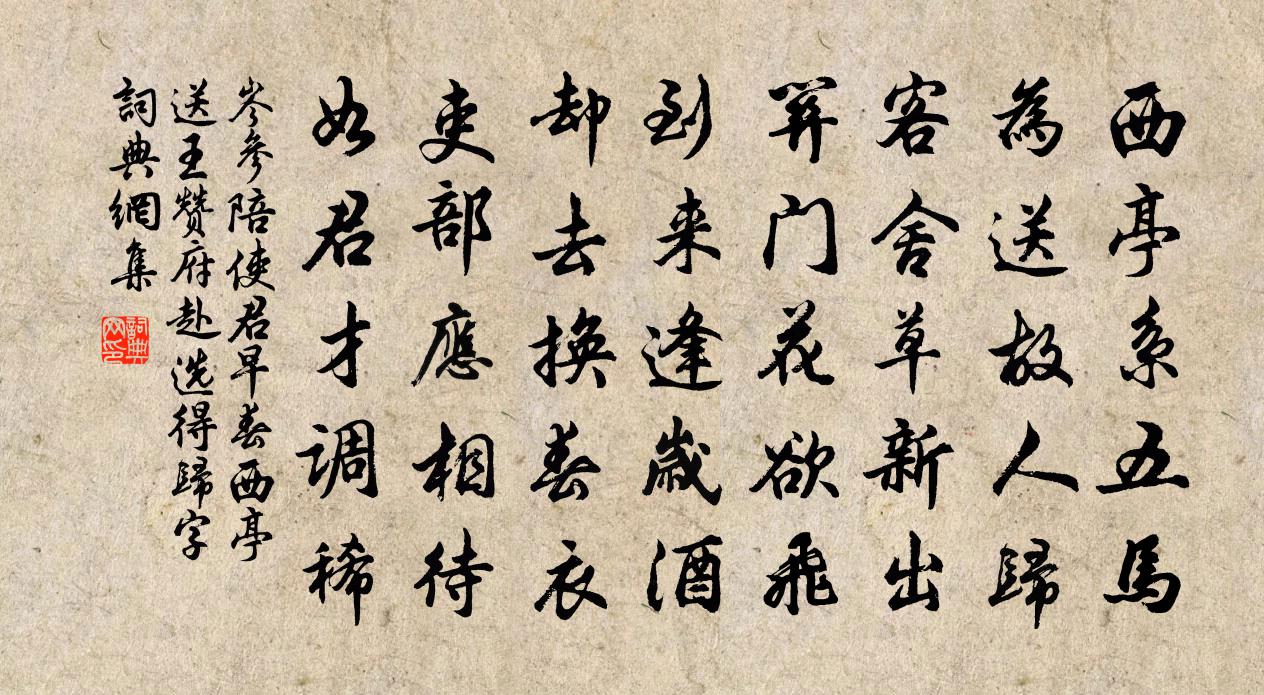 西亭系五馬
為送故人歸
客舍草新出
關門花欲飛
到来逢歲酒
却去換春衣
吏部應相待
如君才調稀
岑參陪使君早春西亭
送王贊府赴選得歸字
詞典網集
詞典網印